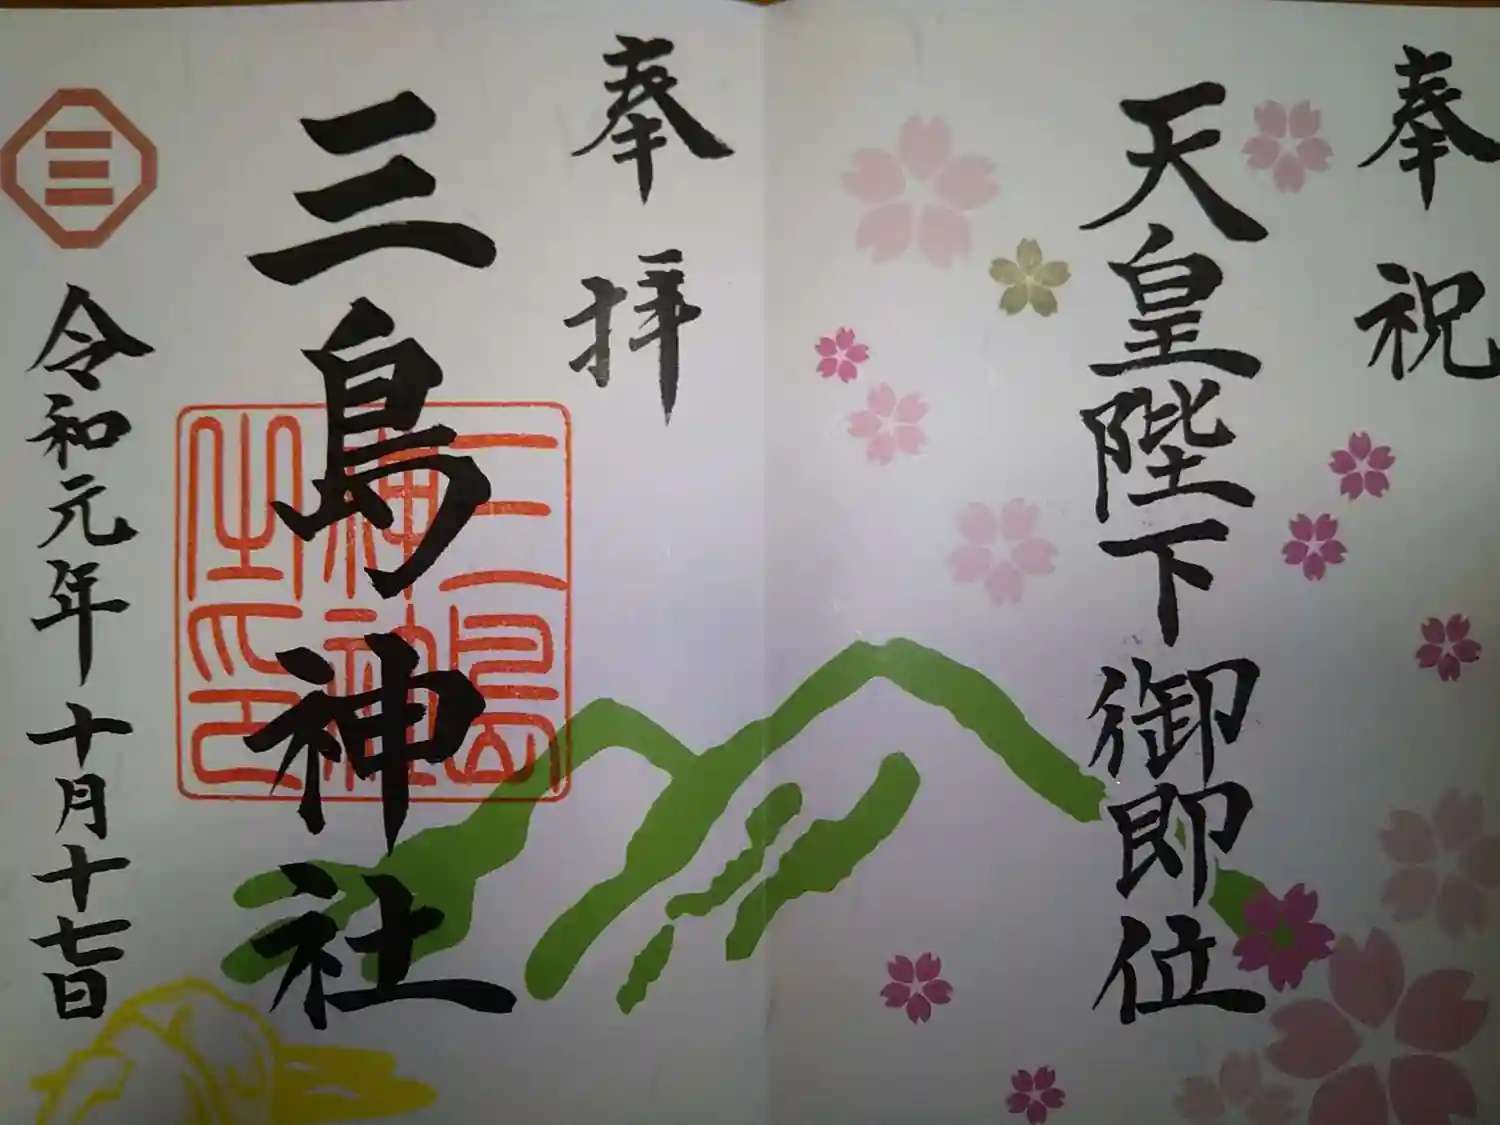 奉祝
天皇陛下御即位
奉拝
三島神社
三島神社之印
令和元年十月十七日
三